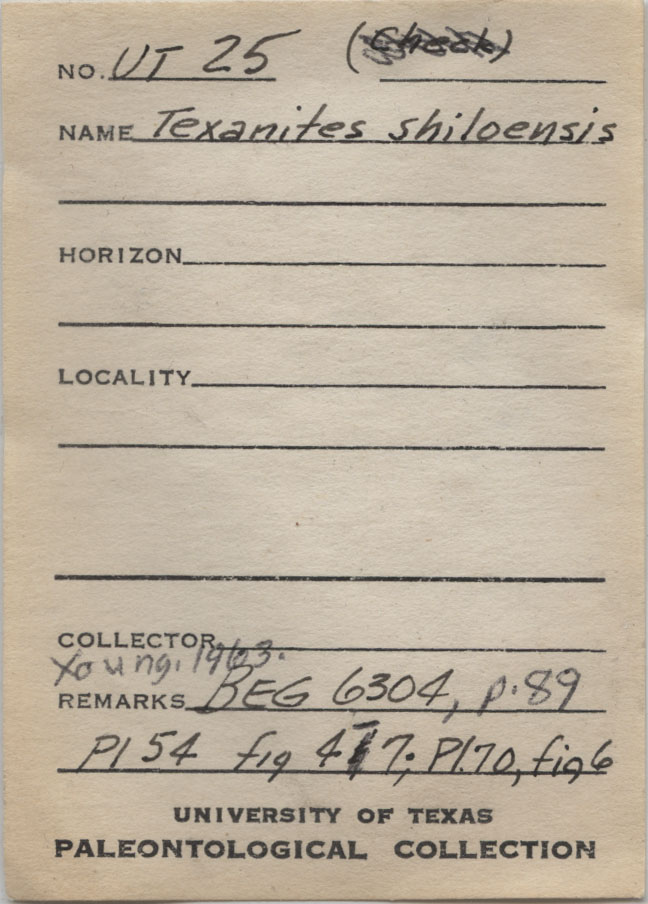 NO. UT 25 (Check)
NAME Texanites shiloensis
HORIZON
LOCALITY
COLLECTOR
Young, 1963.
REMARKS BEG 6304, p.89
Pl 54 fig 4 7; Pl.70, fig 6
UNIVERSITY OF TEXAS
PALEONTOLOGICAL COLLECTION